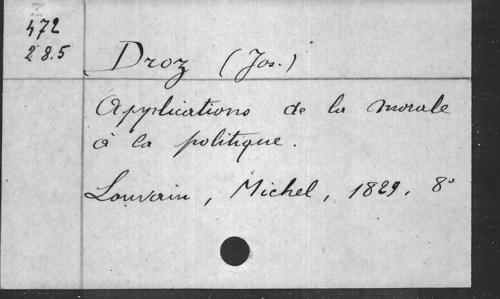 472
28.5
Droz (Jos.)
Applications de la morale
à la politique.
Louvain, Michel, 1829, 8°